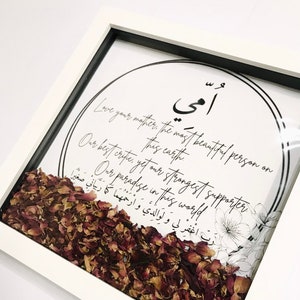 أُمِّي
Love your mother, the most beautiful person on
this earth
Our best critic, yet our strongest supporter
Our paradise in this world
رَبِّ اغْفِرْ لِي وَلِوَالِدَيَّ وَارْحَمْهُمَا كَمَا رَبَّيَانِي صَغِيرًا